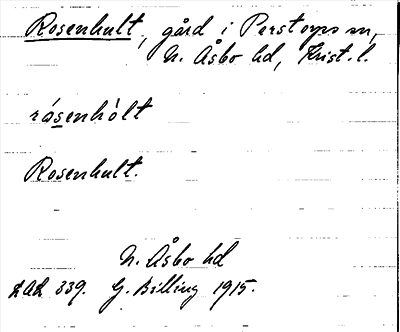 Rosenhult, gård i Perstorps sn,
N. Åsbo hd, Krist. l.
rósenhòlt
Rosenhult.
N. Åsbo hd
339. G. Billing 1915.